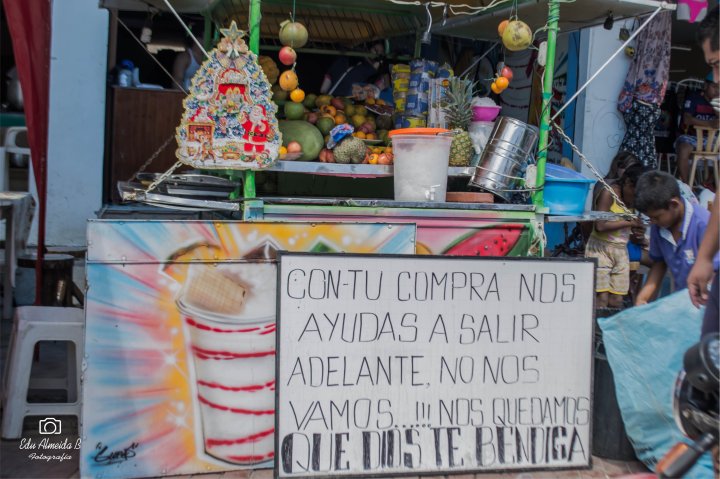 CON-TU COMPRA NOS
AYUDAS A SALIR
ADELANTE, NO NOS
VAMOS...!!! NOS QUEDAMOS
QUE DIOS TE BENDIGA
Edu Almeida B
Fotografía